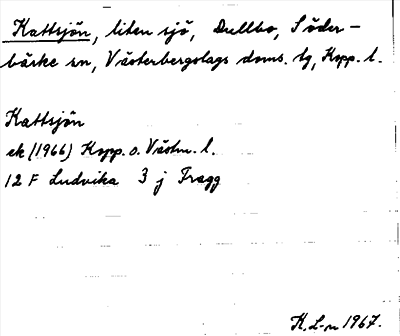 Kattsjön, liten sjö, Dullbo, Söder-
bärke sn, Västerbergslags doms. tg, Kopp. l.
Kattsjön
ek (1966) Kopp. o. Västm. l.
12 F Ludvika 3 j Fragg
K. L-n 1967.